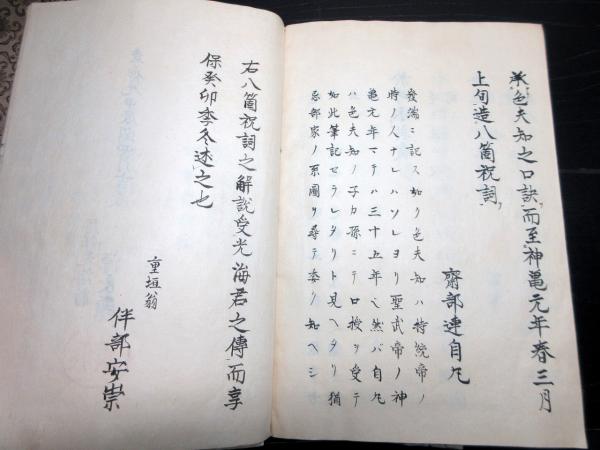 色夫知之口訣而至神亀元年春三月
上旬造八箇祝詞
齋部連自凡
發端ニ記ス如ク色夫知ハ持統帝ノ
時ノ人ナレハソレヨリ聖武帝ノ神
亀元年マテハ三十五年也然バ自凡
ハ色夫知ノ子カ孫ニテ口授ヲ受テ
如此筆記セラレタリト見ヘタリ猶
忌部家ノ系圖ヲ尋テ委ク知ヘシ
右八箇祝詞之解説受光海君之傳而享
保癸卯季冬述之也
重垣翁
伴部安崇